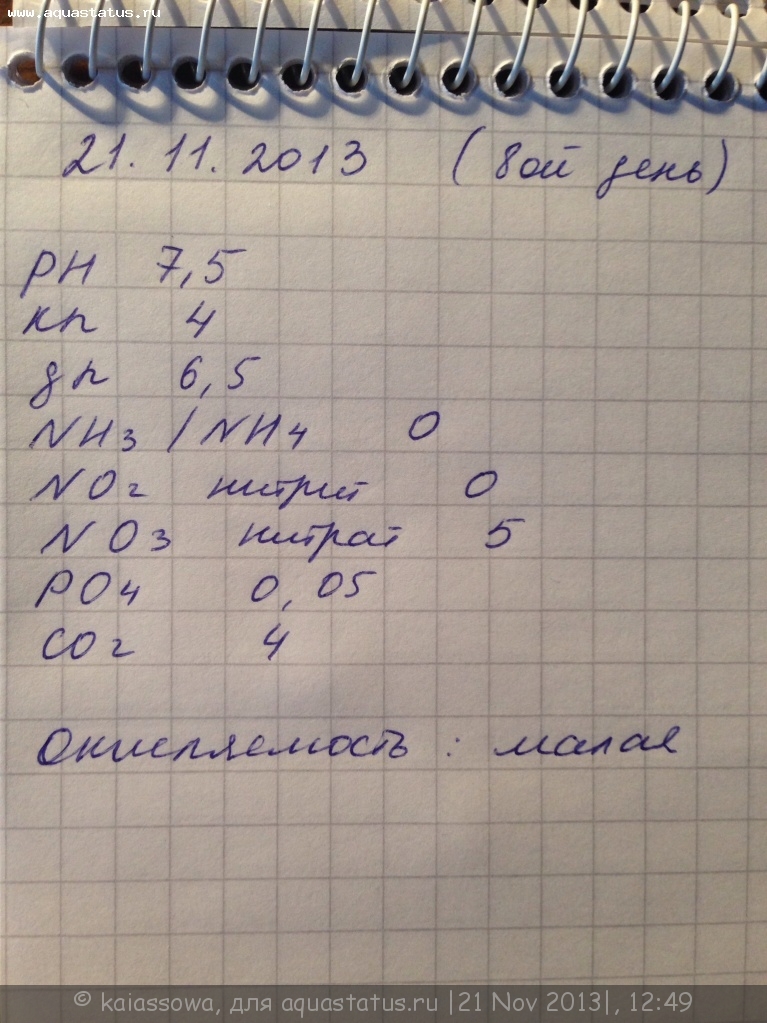 www.aquastatus.ru
21.11.2013 (8ой день)
PH 7,5
кн 4
gh 6,5
NH3 / NH4 0
NO2 нитрит 0
NO3 нитрат 5
PO4 0,05
CO2 4
Окисляемость : малая
© kaiassowa, для aquastatus.ru |21 Nov 2013|, 12:49